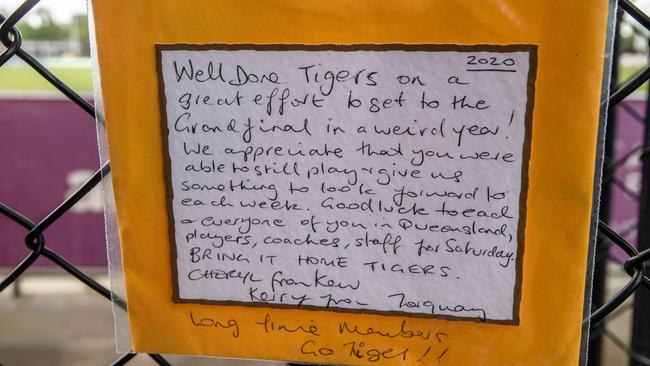 2020
Well Done Tigers on a
great effort to get to the
Grand final in a weird year!
We appreciate that you were
able to still play & give us
something to look forward to
each week. Good luck to each
& everyone of you in Queensland,
players, coaches, staff for Saturday.
BRING IT HOME TIGERS.
CHERYL from Kew
Kerry from Torquay
Long Time Members
Go Tiges!!